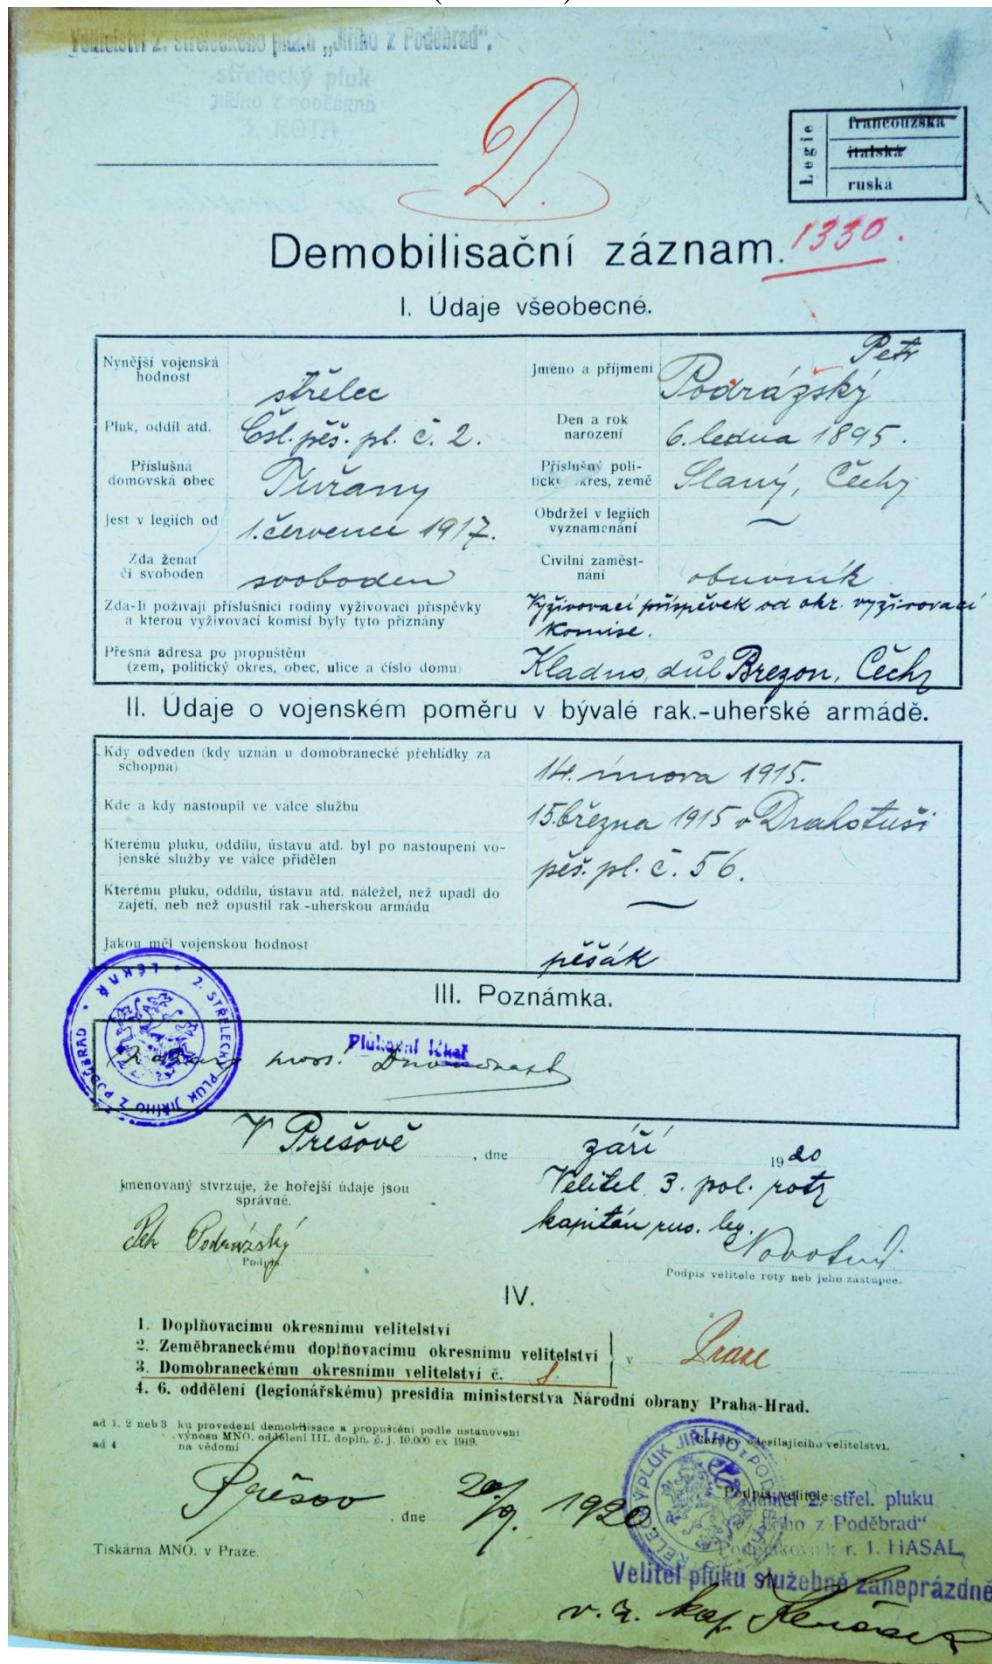 Velitelství 2. střeleckého pluku „Jiřího z Poděbrad“.
střelecký pluk
JIŘÍHO Z PODĚBRAD
ROTA
D.
Legie
francouzská
italská
ruská
Demobilisační záznam. 1330.
I. Údaje všeobecné.
Nynější vojenská hodnost střelec
Jméno a příjmení Petr Podrážský
Pluk, oddíl atd. Čsl. pěš. pl. č. 2.
Den a rok narození 6. ledna 1895.
Příslušná domovská obec Tuřany
Příslušný politický okres, země Slaný, Čechy
Jest v legiích od 1. července 1917.
Obdržel v legiích vyznamenání —
Zda ženat či svoboden svoboden
Civilní zaměstnání obuvník
Zda-li požívají příslušníci rodiny vyživovací příspěvky
a kterou vyživovací komisí byly tyto přiznány
Vyživovací příspěvek od okr. vyživovací
komise.
Přesná adresa po propuštění
(zem, politický okres, obec, ulice a číslo domu)
Kladno, důl Brezon, Čechy
II. Údaje o vojenském poměru v bývalé rak.-uherské armádě.
Kdy odveden (kdy uznán u domobranecké přehlídky za
schopna) 14. února 1915.
Kde a kdy nastoupil ve válce službu 15. března 1915 v Drahotuši
Kterému pluku, oddílu, ústavu atd. byl po nastoupení vo-
jenské služby ve válce přidělen pěš. pl. č. 56.
Kterému pluku, oddílu, ústavu atd. náležel, než upadl do
zajetí, neb než opustil rak.-uherskou armádu —
Jakou měl vojenskou hodnost pěšák
III. Poznámka.
2. STŘELECKÝ PLUK JIŘÍHO Z PODĚBRAD • LÉKAŘ •
Plukovní lékař
V Prešově, dne září 1920
Jmenovaný stvrzuje, že hořejší údaje jsou
správné.
Velitel 3. pol. roty
kapitán rus. leg.
Petr Podrážský
Podpis.
Novotný
Podpis velitele roty neb jeho zástupce.
IV.
1. Doplňovacímu okresnímu velitelství
2. Zeměbraneckému doplňovacímu okresnímu velitelství
3. Domobraneckému okresnímu velitelství č. 8.
v Praze
4. 6. oddělení (legionářskému) presidia ministerstva Národní obrany Praha-Hrad.
ad 1. 2 neb 3 ku provedení demobilisace a propuštění podle ustanovení
výnosu MNO. oddělení III. doplň. č. j. 10.000 ex 1919.
ad 4 na vědomí
odesílajícího velitelství.
Prešov, dne 20/9. 1920.
Podpis velitele:
Velitel 2. střel. pluku
„Jiřího z Poděbrad“
Podplukovník r. l. HASAL,
Tiskárna MNO. v Praze.
Velitel pluku služebně zaneprázdně
v. z. kap.